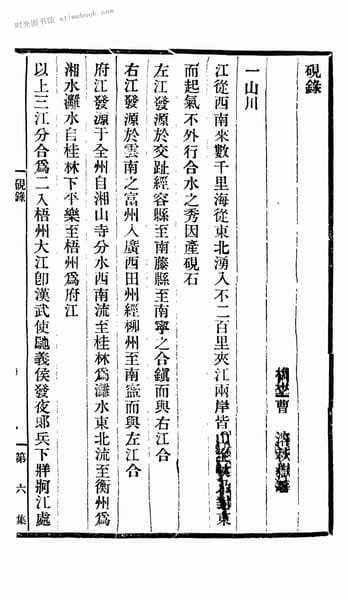 时光图书馆 · atimebook.com
硯錄
曹
一山川
江從西南來數千里海從東北湧入不二百里夾江兩岸皆山東
而起氣不外行合水之秀因產硯石
左江發源於交趾經容縣至南藤縣至南寧之合鎭而與右江合
右江發源於雲南之富州入廣西田州經柳州至南寧而與左江合
府江發源于全州自湘山寺分水西南流至桂林爲灕水東北流至衡州爲
湘水灕水自桂林下平樂至梧州爲府江
以上三江分合爲二入梧州大江卽漢武使馳義侯發夜郞兵下牂牁江處
硯錄
第六集